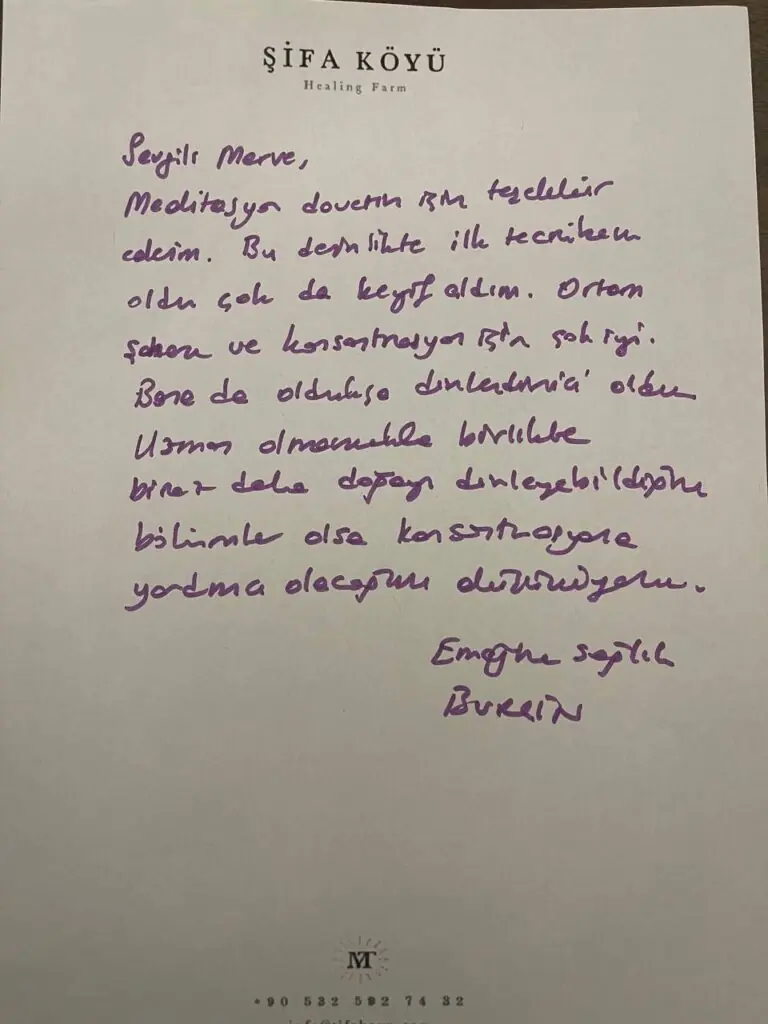 ŞİFA KÖYÜ
Healing Farm
Sevgili Merve,
Meditasyon davetin için teşekkür
ederim. Bu derinlikte ilk tecrübem
oldu çok da keyif aldım. Ortam
şahane ve konsantrasyon için çok iyi.
Bana da oldukça dinlendirici oldu
Uzman olmamakla birlikte
biraz daha doğayı dinleyebildiğim
bölümler olsa konsantrasyona
yardımcı olacağını düşünüyorum.
Emeğine sağlık
BURÇİN
MT
+90 532 592 74 32